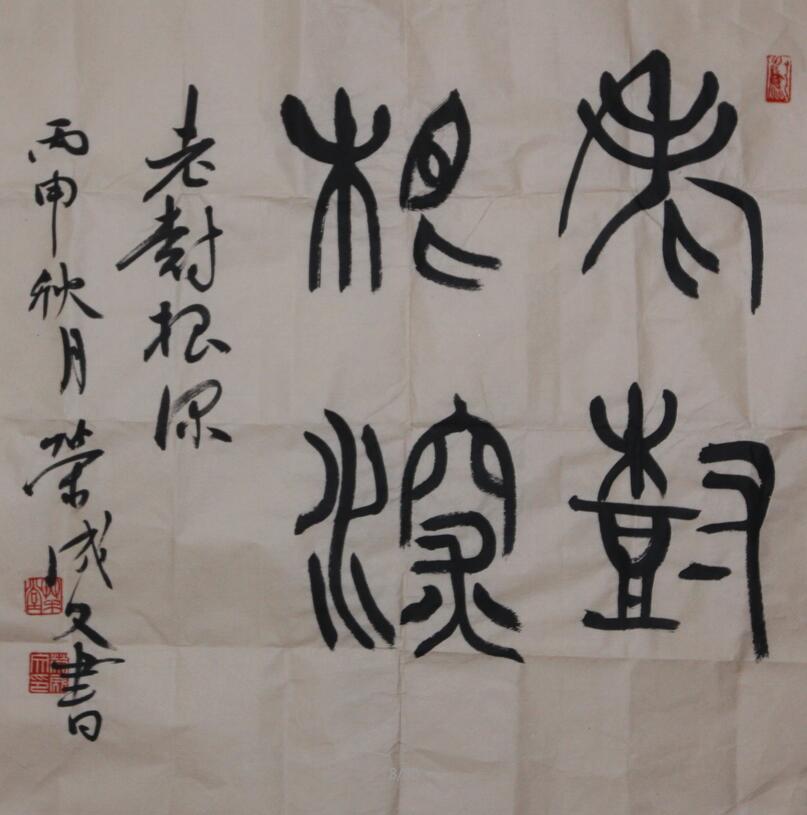 老樹
根深
老樹根深
丙申秋月榮成文書